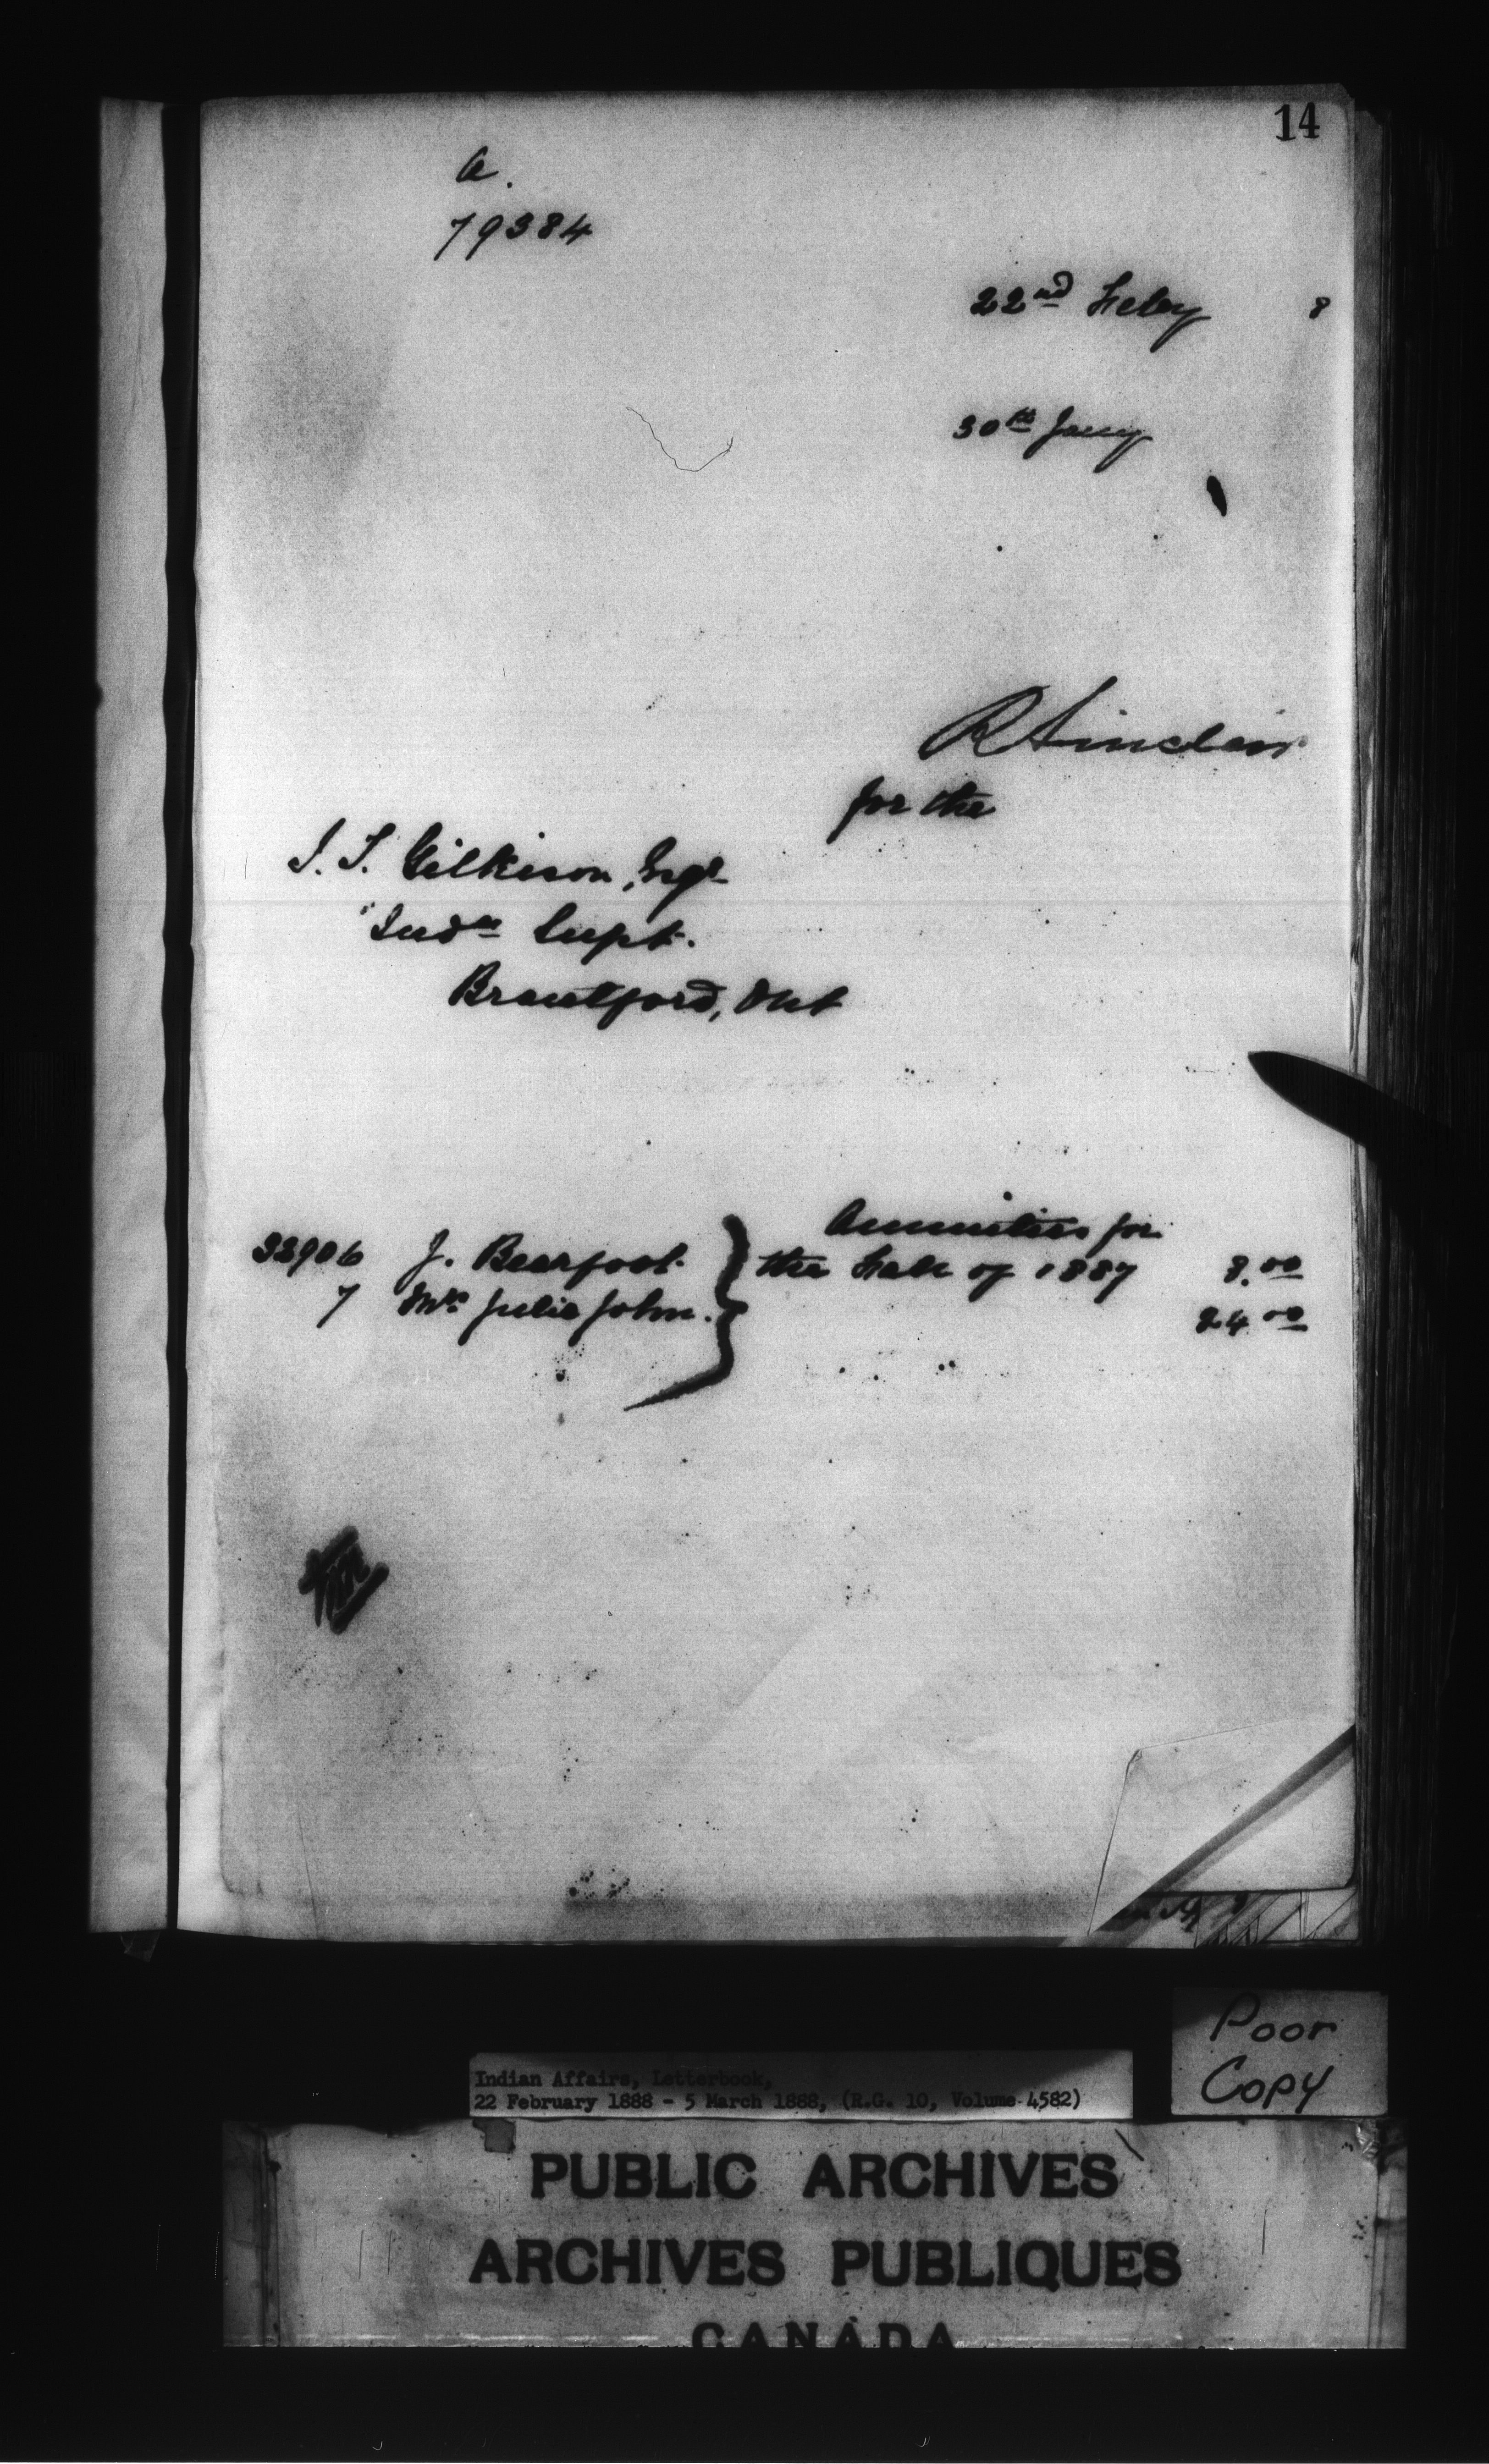 14
a.
79384
22nd Feby 8
30th Jany
R Sinclair
for the
J. T. Gilkison, Esqr
Indn Supt.
Brantford, Ont
Annuities for
32906 J. Bearfoot. the Fall of 1887 8.00
7 Mrs Julia John. 24.00
Poor
Copy
Indian Affairs, Letterbook,
22 February 1888 - 5 March 1888, (R.G. 10, Volume 4582)
PUBLIC ARCHIVES
ARCHIVES PUBLIQUES
CANADA